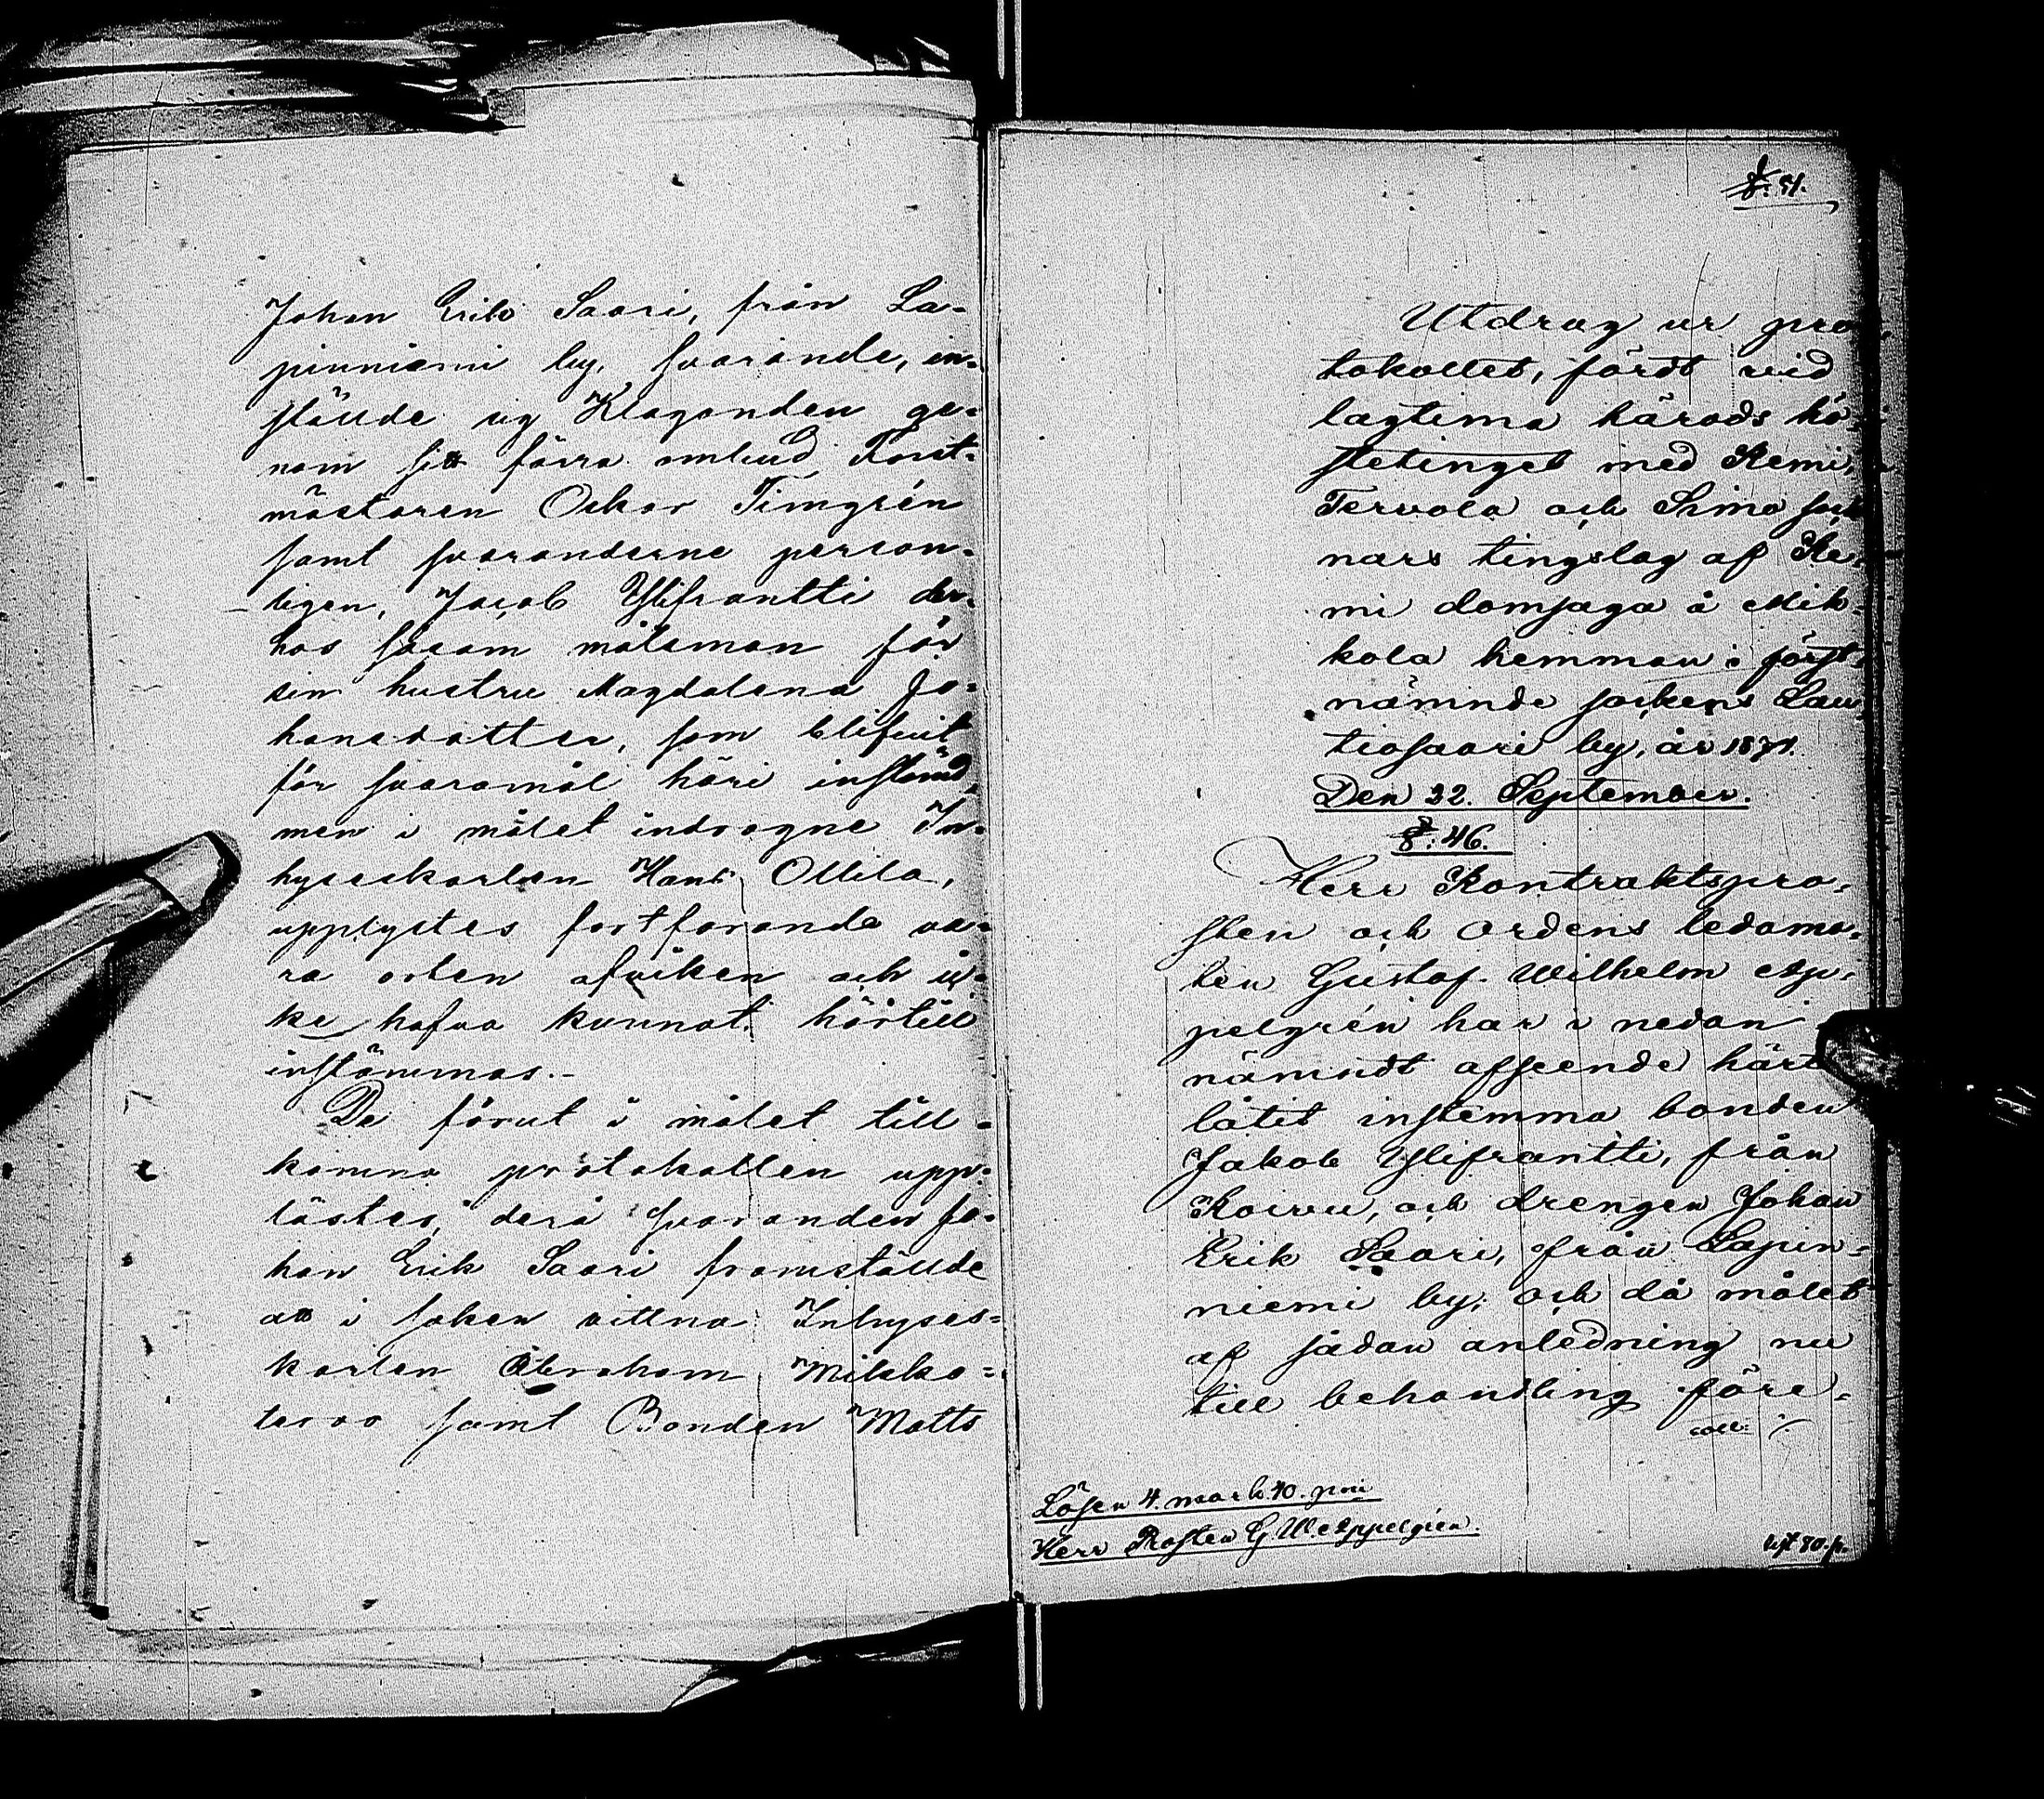 Johan Erik Saari, från La-
pinniemi by, svarande, in-
stälde sig Klaganden ge-
nom sitt förra ombud, Forst-
mästaren Oskar Timgrén
samt svaranderne person-
ligen, Jacob Ylifrantti der-
hos såsom målsman för
sin hustru Magdalena Jo-
hansdotter, som blifvit
för svaromål häri instämd,
men i målet indragne In-
hyseskarlen Hans Ollila,
upplystes fortfarande va-
ra orten afviken och ic-
ke hafva kunnat härtill
instämmas.-
De förut i målet till-
komna protokollen upp-
lästes, derå svaranden Jo-
han Erik Saari framstälde
att i saken vittna Inhyses-
karlen Abraham Mikko-
tervo samt Bonden Matts
§: 51.
Utdrag ur pro-
tokollet, fördt vid
lagtima härads hö-
stetinget med Kemi,
Tervola och Simo sock-
nars tingslag af Ke-
mi domsaga å Mik-
kola hemman i först-
nämnde sockens Lau-
tiosaari by, år 1871.
Den 22. September.
§: 46.
Herr Kontraktspro-
sten och ordens ledamo-
ten Gustaf Wilhelm Ap-
pelgrén har i nedan-
nämndt afseende härt
låtit instemma bonden
Jakob Ylifrantti, från
Koivu, och drengen Johan
Erik Saari, från Lapin-
niemi by; och då målet
af sådan anledning nu
till behandling före-
coll: ·/.
Lösen 4. mark 40. pni
Herr Prosten G. W. Appelgrén.
80. p.